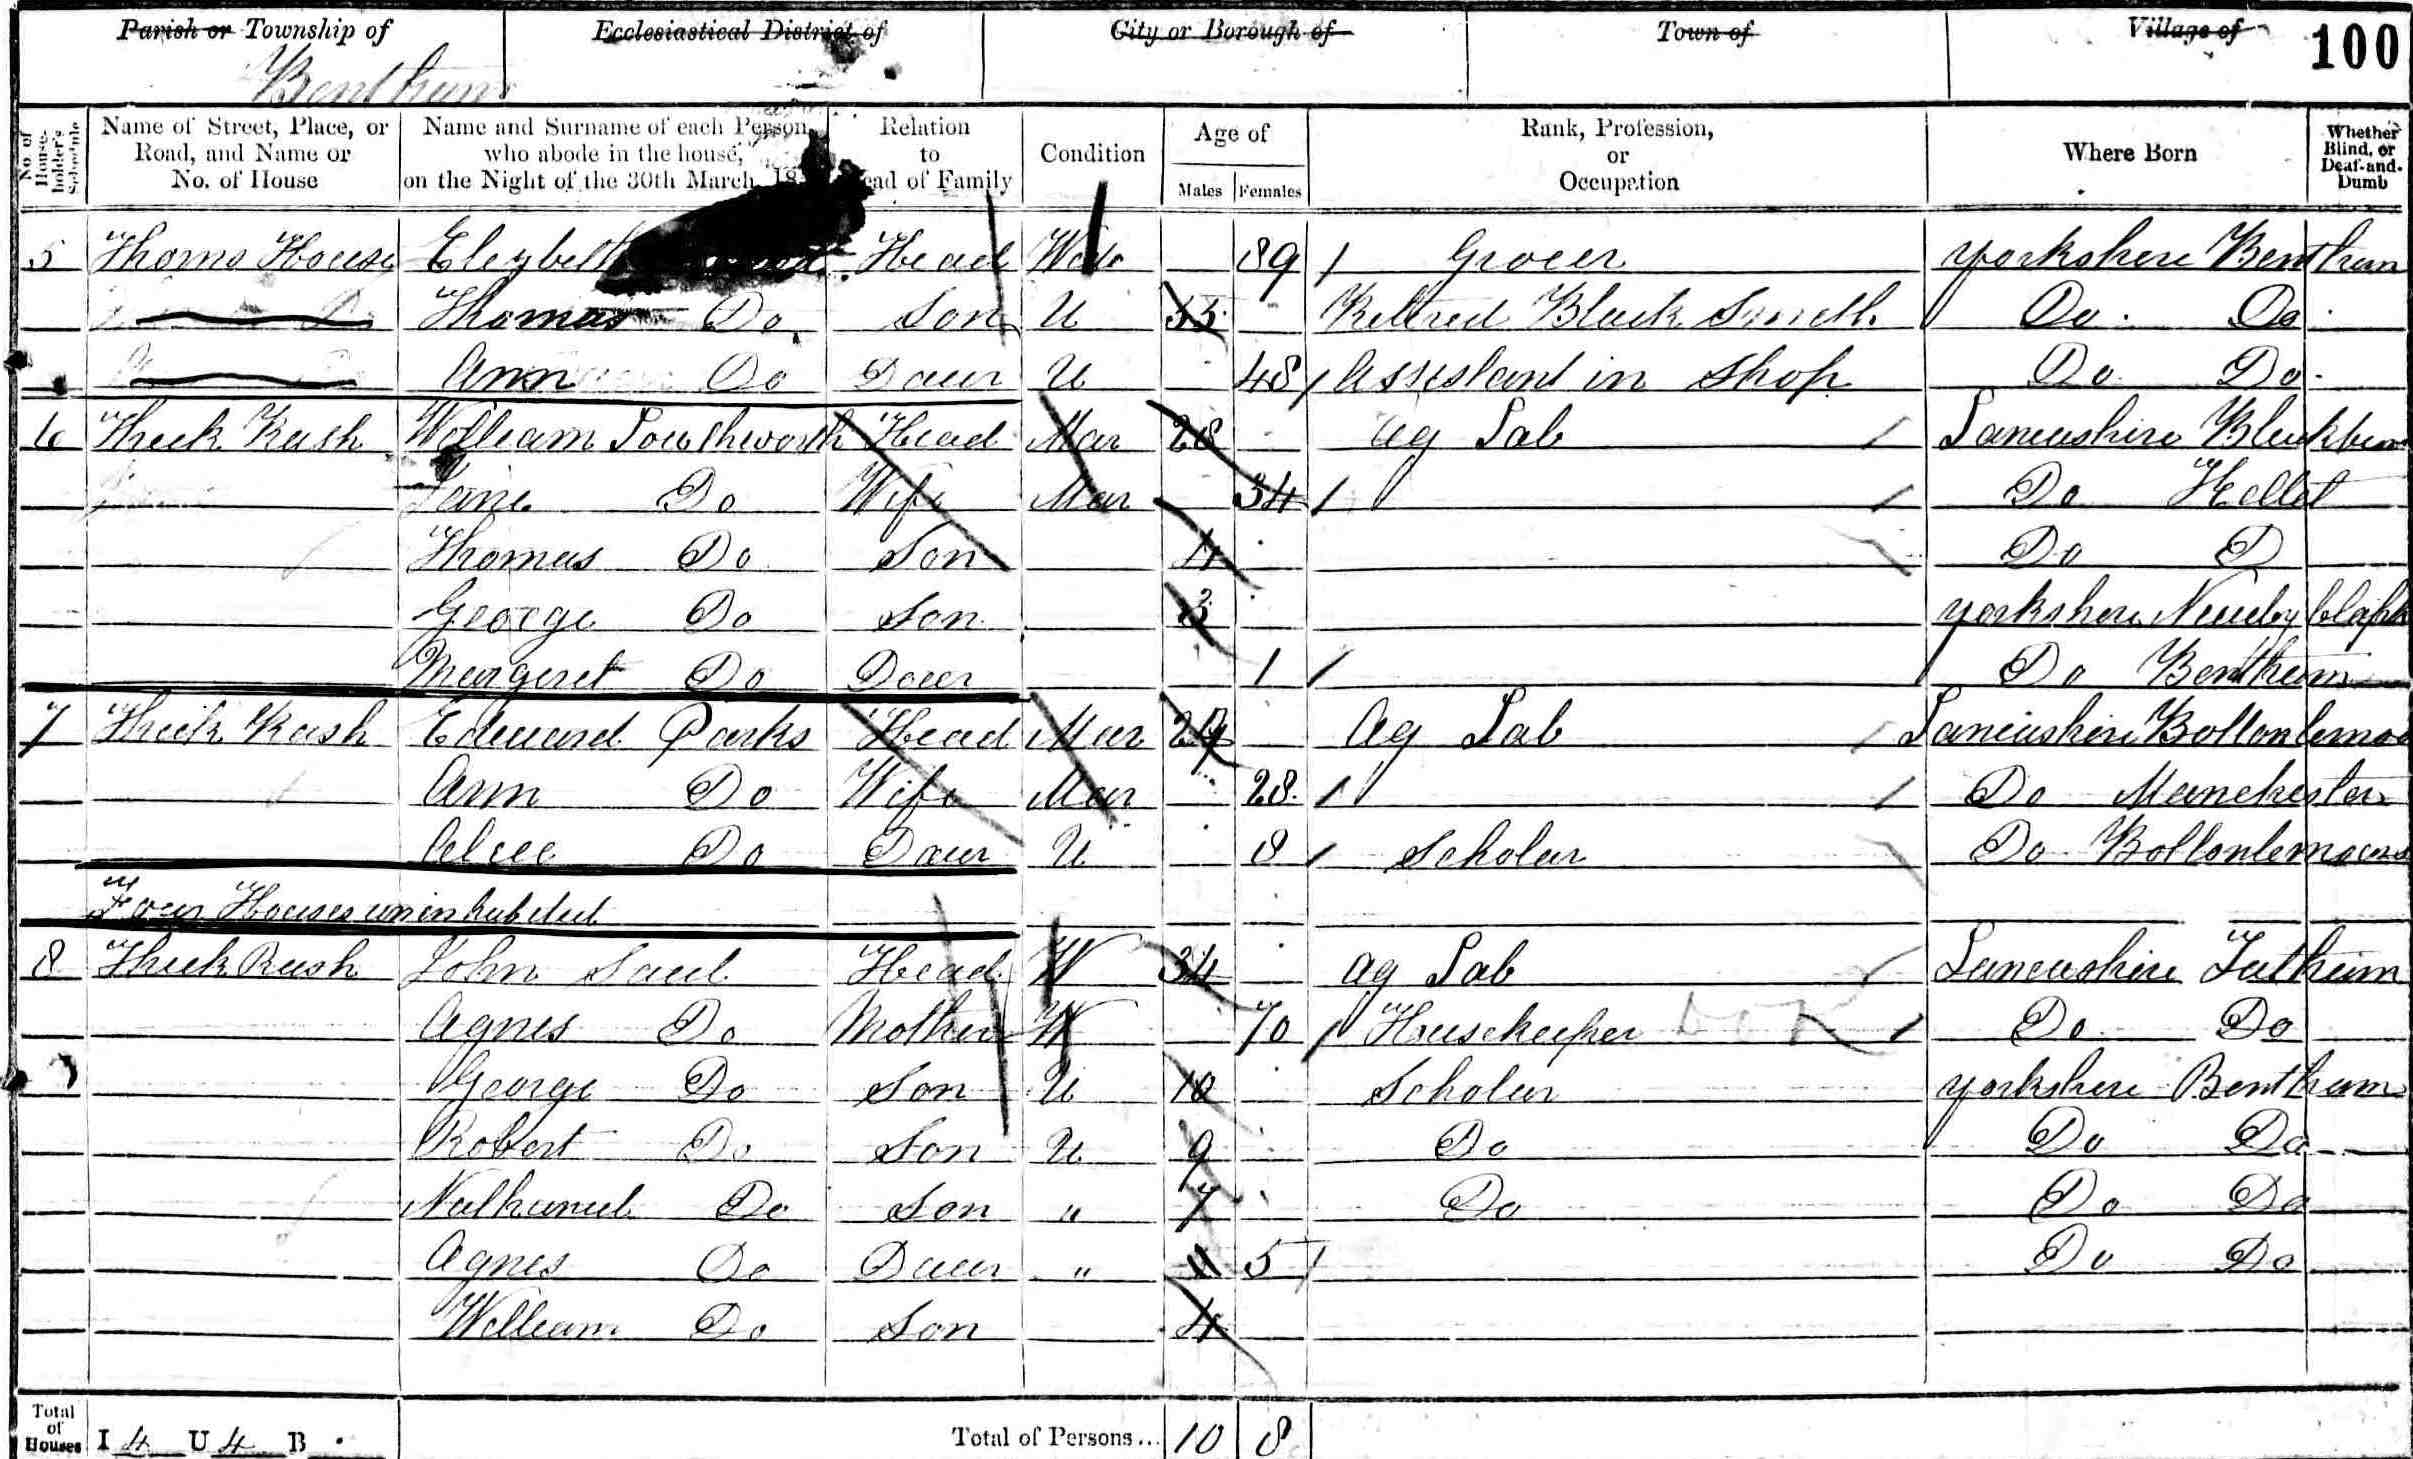 Parish or Township of Ecclesiastical District of City or Borough of Town of Village of 100
Bentham
No. of House-holder's Schedule Name of Street, Place, or Road, and Name or No. of House Name and Surname of each Person who abode in the house, on the Night of the 30th March, 18 Relation to Head of Family Condition Age of Males Females Rank, Profession, or Occupation Where Born Whether Blind, or Deaf-and-Dumb
5 Thorns House Elezbeth Head 89 Grocer Yorkshire Bentham
Thomas Do Son U 55 Retired Black Smith Do Do
Ann Do Daur U 48 Assistant in Shop Do Do
6 Thick Rash William Southworth Head Mar 28 Ag Lab Lancashire Blackburn
Jane Do Wife Mar 34 Do Hellet
Thomas Do Son 4 Do D
George Do Son 3 Yorkshire Newby Clapham
Margeret Do Daur 1 Do Bentham
7 Thick Rash Edward Parks Head Mar Ag Lab Lancashire Boltonlemoors
Ann Do Wife Mar 28 Do Manchester
Alice Do Daur U 8 Scholar Do Boltonlemoors
Four Houses uninhabited
8 Thick Rash John Saul Head W 34 Ag Lab Lancashire Tatham
Agnes Do Mother W 70 Housekeeper Do Do
George Do Son U 10 Scholar Yorkshire Bentham
Robert Do Son U 9 Do Do Do
Nathanel Do Son " 7 Do Do Do
Agnes Do Daur " 5 Do Do
William Do Son 4
Total of Houses I 4 U 4 B Total of Persons... 10 8